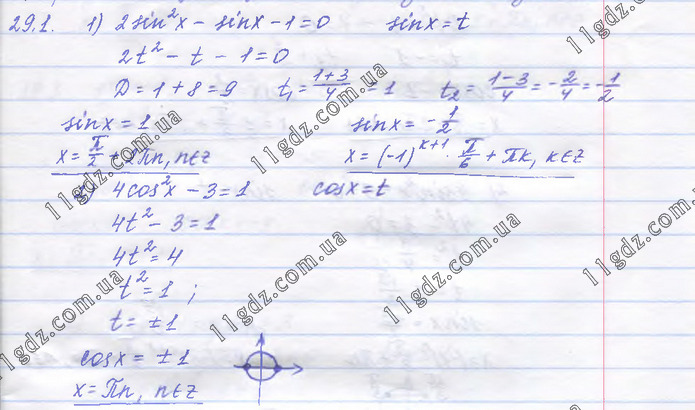 29.1. 1) 2sin²x - sinx - 1 = 0 sinx = t
2t² - t - 1 = 0
D = 1 + 8 = 9 t₁ = (1+3)/4 = 1 t₂ = (1-3)/4 = -2/4 = -1/2
sinx = 1 sinx = -1/2
x = π/2 + 2πn, n∈z x = (-1)^(k+1) · π/6 + πk, k∈z
4cos²x - 3 = 1 cosx = t
4t² - 3 = 1
4t² = 4
t² = 1 ;
t = ±1
cosx = ±1
x = πn, n∈z
11gdz.com.ua
11gdz.com.ua
11gdz.com.ua
11gdz.com.ua
11gdz.com.ua
11gdz.com.ua
11gdz.com.ua